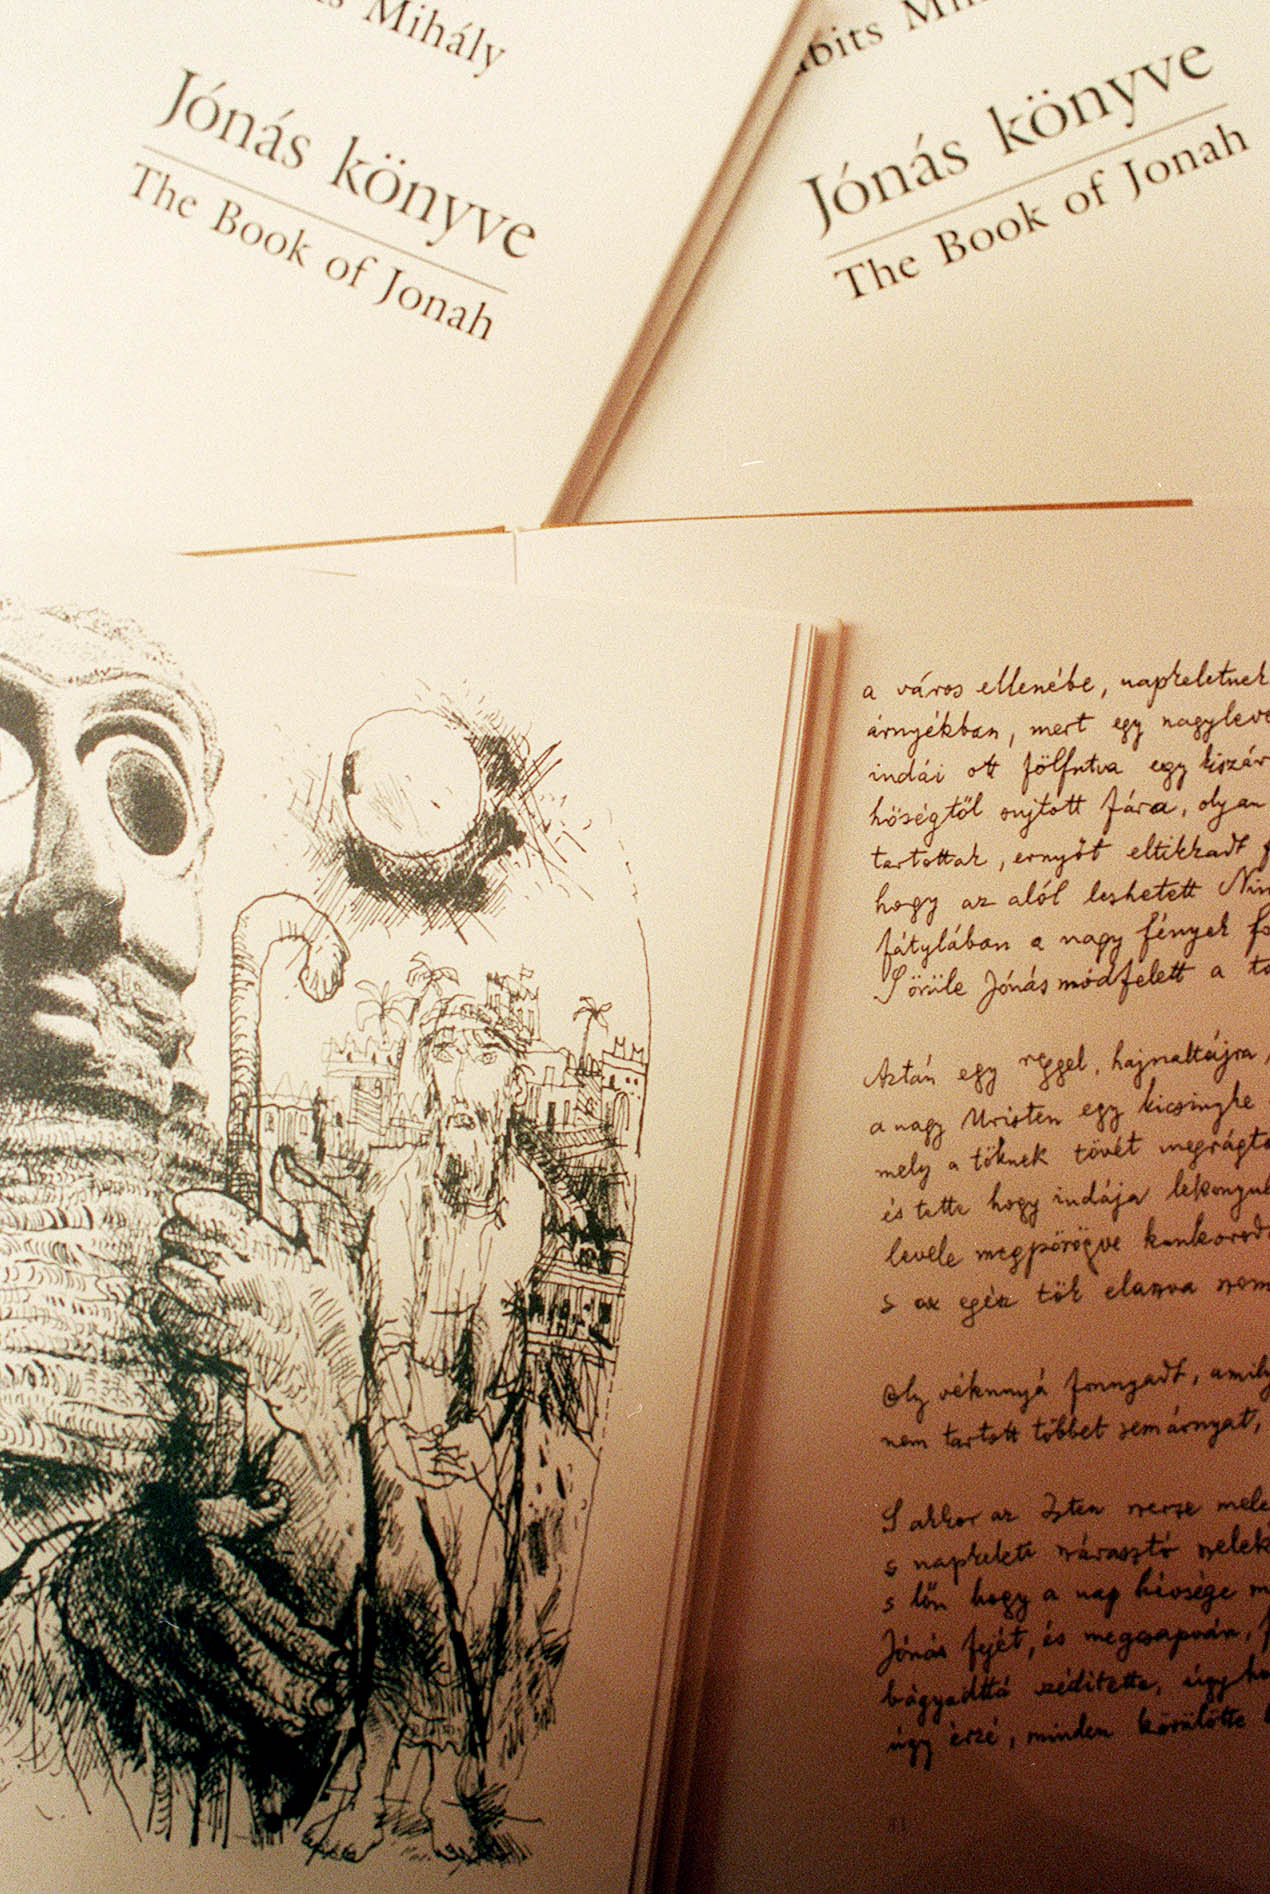 Mihály
Jónás könyve
The Book of Jonah
Jónás könyve
The Book of Jonah
a város ellenébe, napkeletnek
árnyékban, mert egy nagyleve
indái ott fölfutva egy kiszár
hőségtől sujtott fára, olyan
tartottak, ernyőt eltikkadt f
hogy az alól leshetett Nin
fátylában a nagy fények fo
S örüle Jónás módfelett a tö
Aztán egy reggel, hajnaltájra,
a nagy Uristen egy kicsinyke
mely a töknek tövét megrágta
és tette hogy indája lekonyul
levele megpörögve kunkorod
s az egész tök elaszva
Oly véknnyá fonnyadt, amily
nem tartott többet sem árnyat,
S akkor az Isten szerze mele
s napkeleti szárasztó szelek
s lőn hogy a nap hévsége m
Jónás fejét, és megcsapván, f
bágyadttá szédítette, úgy ho
úgy érzé, minden körülötte